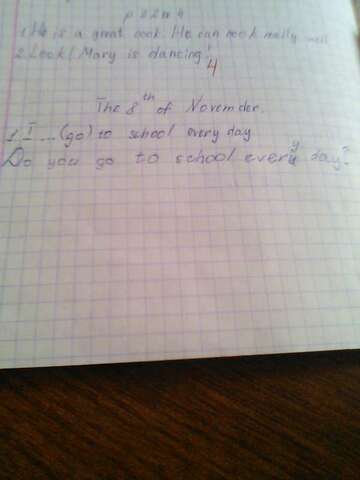 1. He is a great cook. He can cook really well
2. Look! Mary is dancing!
4
The 8th of November.
1. I ... (go) to school every day
Do you go to school every day?